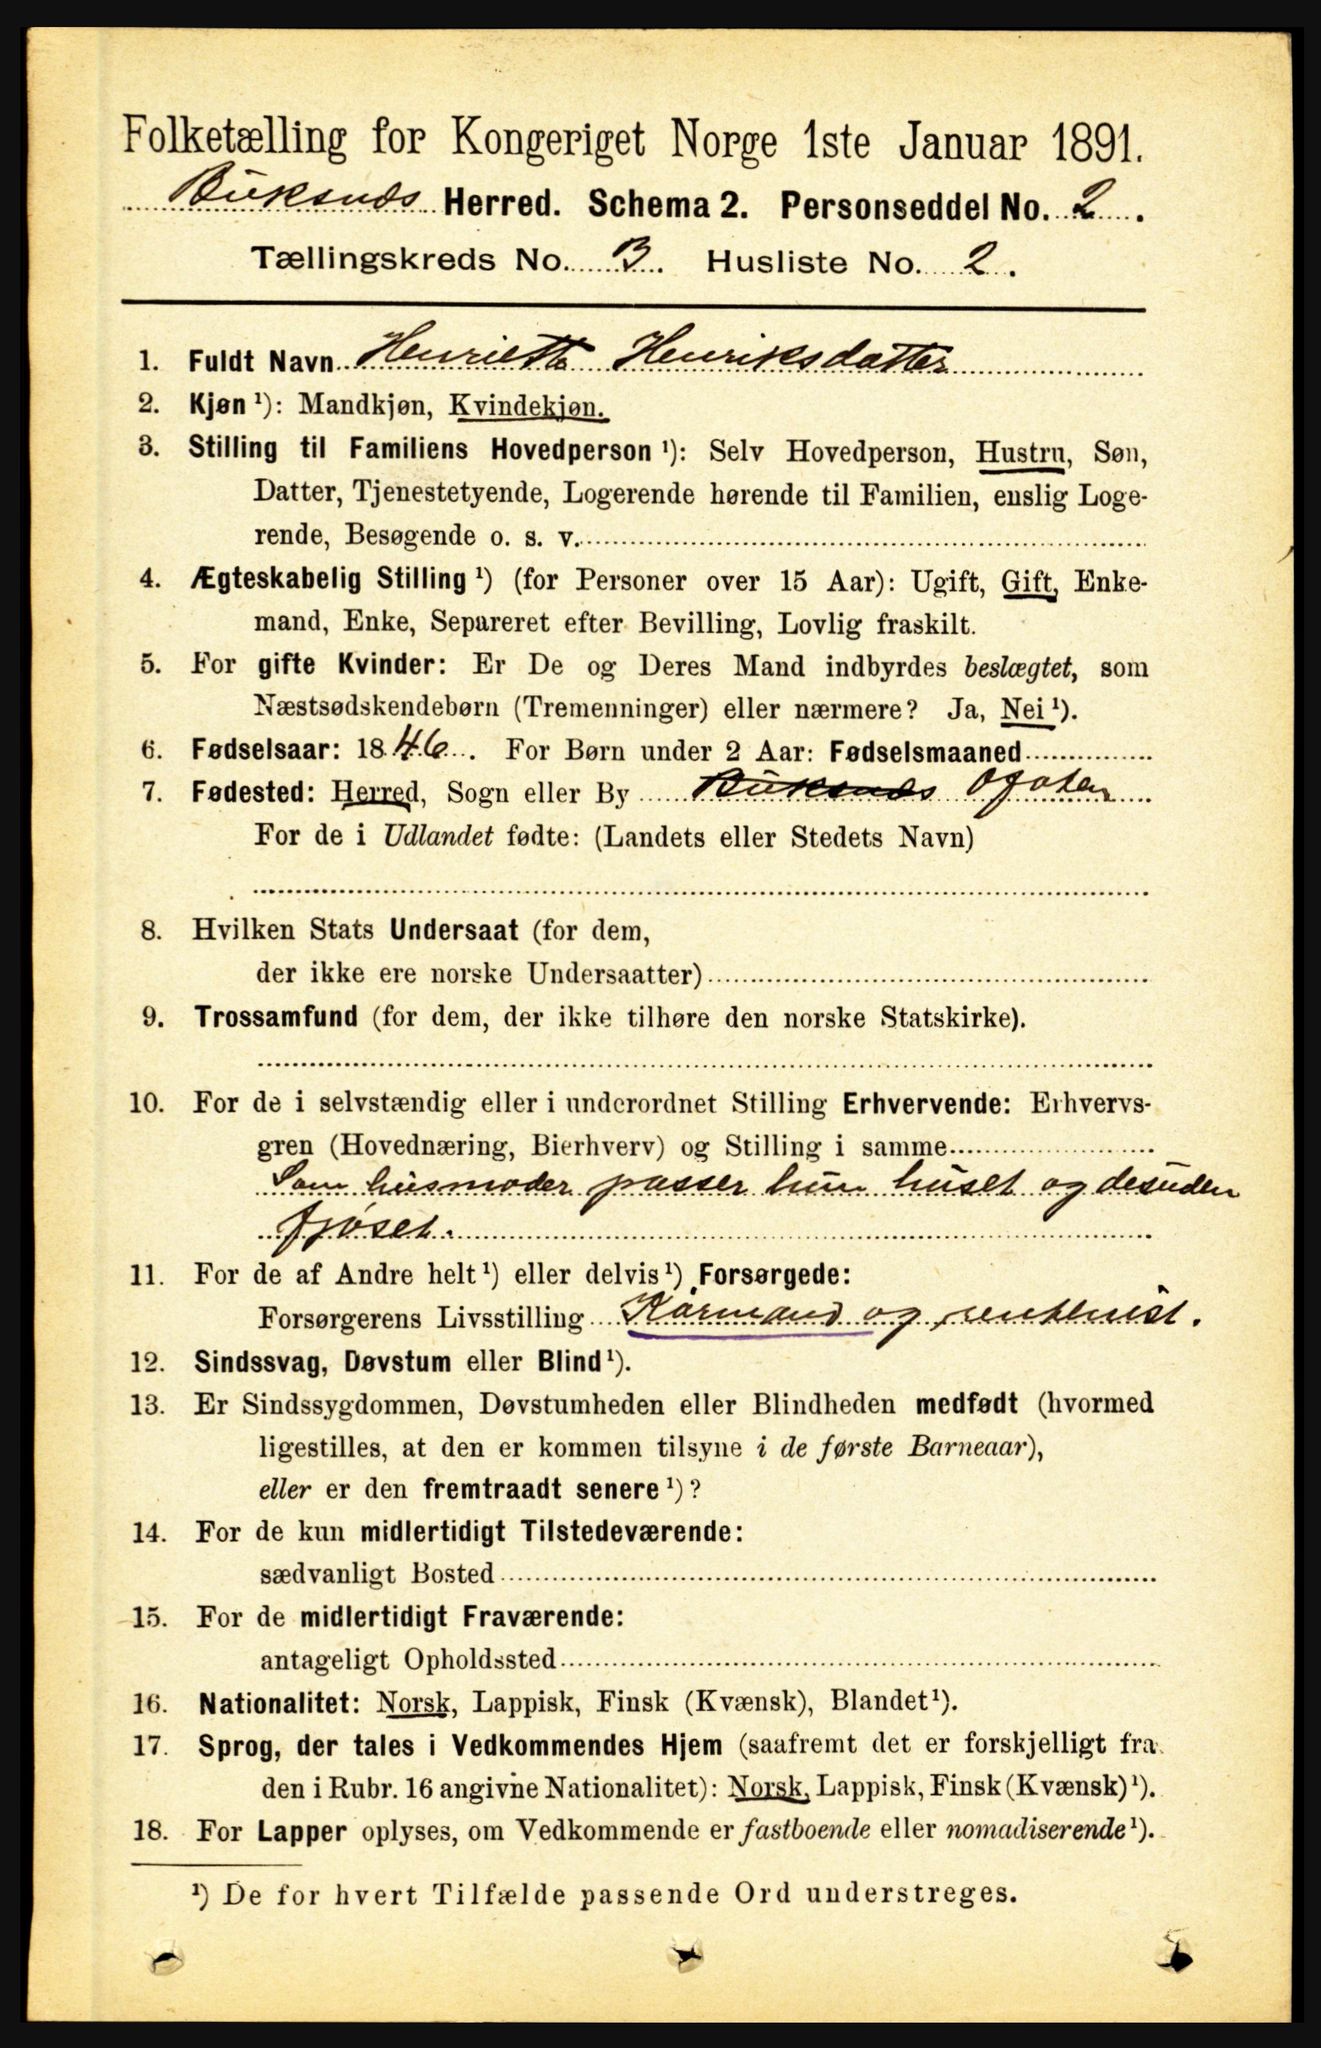 Folketælling for Kongeriget Norge 1ste Januar 1891.
Buksnæs Herred. Schema 2. Personseddel No. 2.
Tællingskreds No. 3. Husliste No. 2.
1. Fuldt Navn Henriette Henriksdatter
2. Kjøn ¹): Mandkjøn, Kvindekjøn.
3. Stilling til Familiens Hovedperson ¹): Selv Hovedperson, Hustru, Søn,
Datter, Tjenestetyende, Logerende hørende til Familien, enslig Loge-
rende, Besøgende o. s. v.
4. Ægteskabelig Stilling ¹) (for Personer over 15 Aar): Ugift, Gift, Enke-
mand, Enke, Separeret efter Bevilling, Lovlig fraskilt.
5. For gifte Kvinder: Er De og Deres Mand indbyrdes beslægtet, som
Næstsødskendebørn (Tremenninger) eller nærmere? Ja, Nei ¹).
6. Fødselsaar: 1846. For Børn under 2 Aar: Fødselsmaaned
7. Fødested: Herred, Sogn eller By Buksnæs Ofoten
For de i Udlandet fødte: (Landets eller Stedets Navn)
8. Hvilken Stats Undersaat (for dem,
der ikke ere norske Undersaatter)
9. Trossamfund (for dem, der ikke tilhøre den norske Statskirke).
10. For de i selvstændig eller i underordnet Stilling Erhvervende: Erhvervs-
gren (Hovednæring, Bierhverv) og Stilling i samme
Som husmoder passer hun huset og desuden
fjøset.
11. For de af Andre helt ¹) eller delvis ¹) Forsørgede:
Forsørgerens Livsstilling Kårmand og rentenist.
12. Sindssvag, Døvstum eller Blind ¹).
13. Er Sindssygdommen, Døvstumheden eller Blindheden medfødt (hvormed
ligestilles, at den er kommen tilsyne i de første Barneaar),
eller er den fremtraadt senere ¹)?
14. For de kun midlertidigt Tilstedeværende:
sædvanligt Bosted
15. For de midlertidigt Fraværende:
antageligt Opholdssted
16. Nationalitet: Norsk, Lappisk, Finsk (Kvænsk), Blandet ¹).
17. Sprog, der tales i Vedkommendes Hjem (saafremt det er forskjelligt fra
den i Rubr. 16 angivne Nationalitet): Norsk, Lappisk, Finsk (Kvænsk) ¹).
18. For Lapper oplyses, om Vedkommende er fastboende eller nomadiserende ¹).
¹) De for hvert Tilfælde passende Ord understreges.